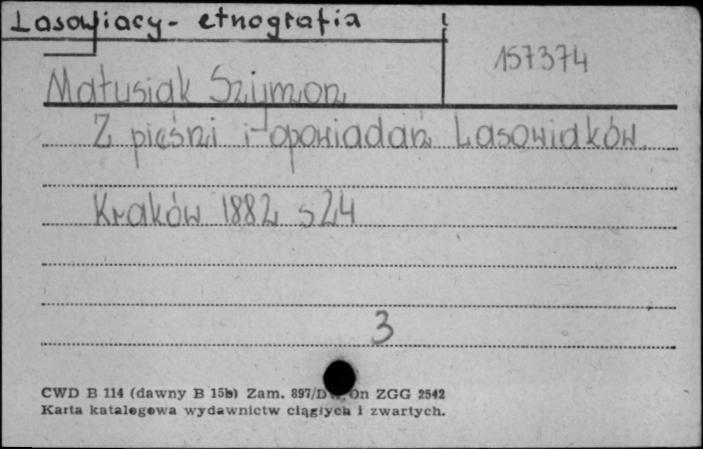 Lasowiacy - etnografia
157374
Matusiak Szymon
Z pieśni i opowiadań Lasowiaków.
Kraków 1882 s 24
3
CWD B 114 (dawny B 15b) Zam. 897/D On ZGG 2542
Karta katalogowa wydawnictw ciągłych i zwartych.